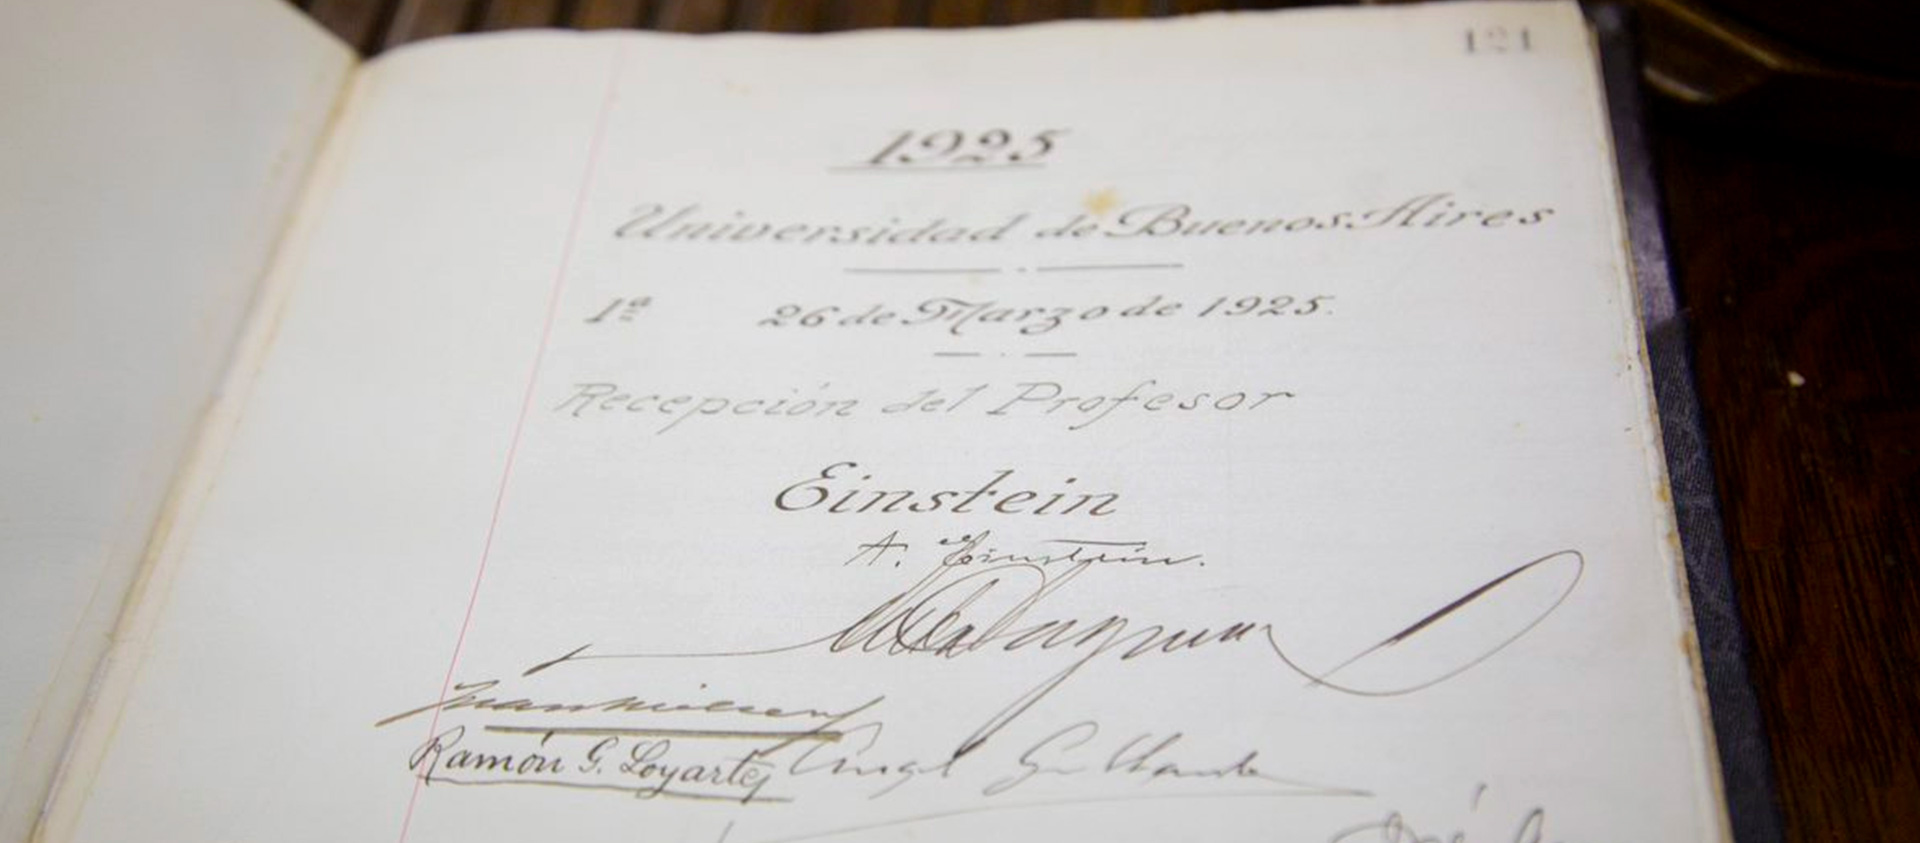 121
1925
Universidad de Buenos Aires
1ª 26 de Marzo de 1925.
Recepción del Profesor
Einstein
A. Einstein.
Ramón G. Loyarte